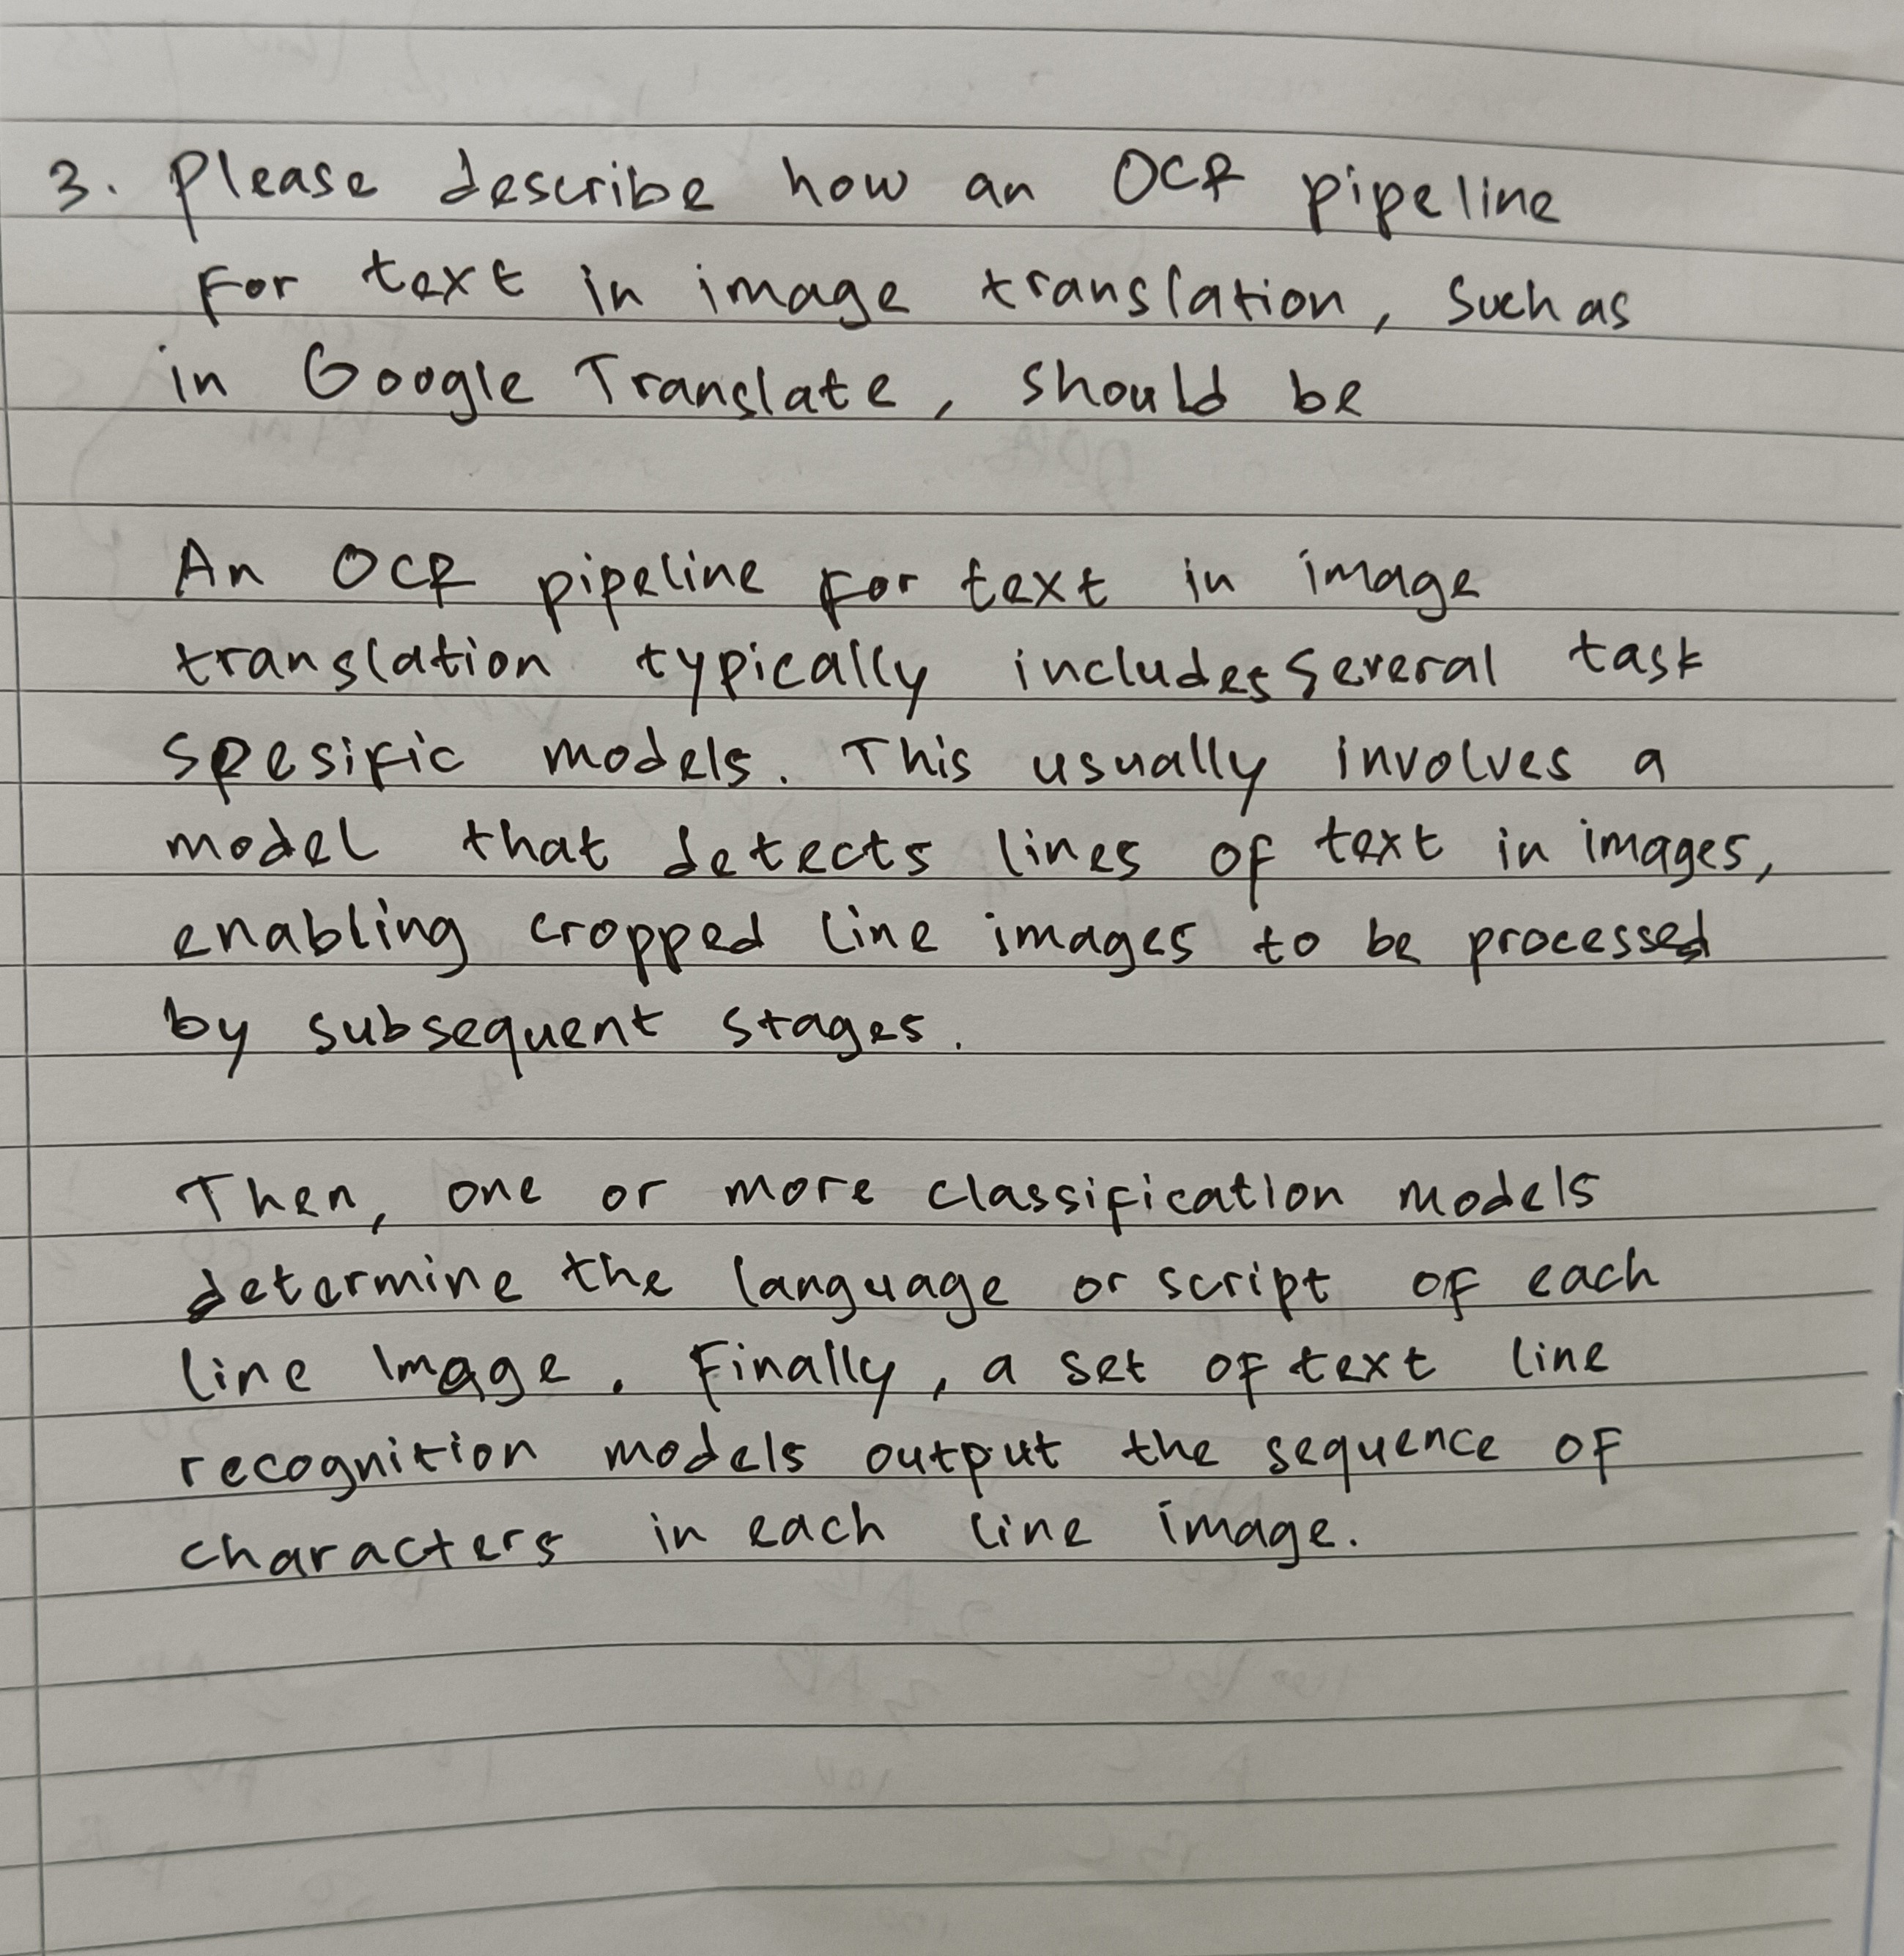 3. Please describe how an OCR pipeline
for text in image translation, such as
in Google Translate, should be
An OCR pipeline for text in image
translation typically includes several task
spesific models. This usually involves a
model that detects lines of text in images,
enabling cropped line images to be processed
by subsequent stages.
Then, one or more classification models
determine the language or script of each
line image. Finally, a set of text line
recognition models output the sequence of
characters in each line image.